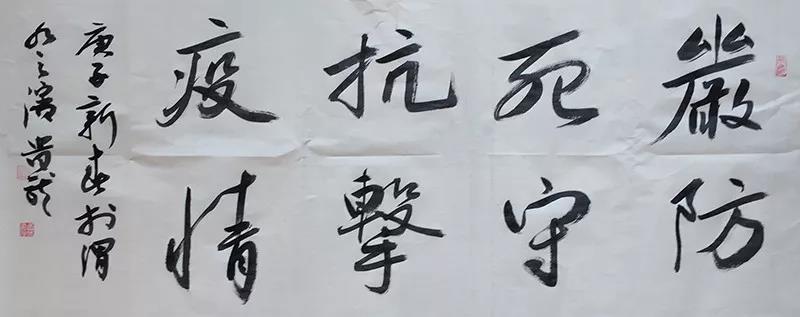 嚴防
死守
抗擊
疫情
庚子新春於渭
水之濱